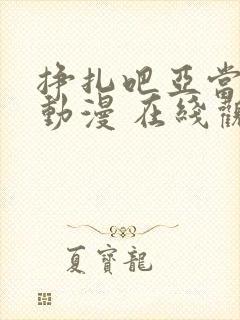 掙扎吧亞當
動漫 在綫觀
夏寶龍